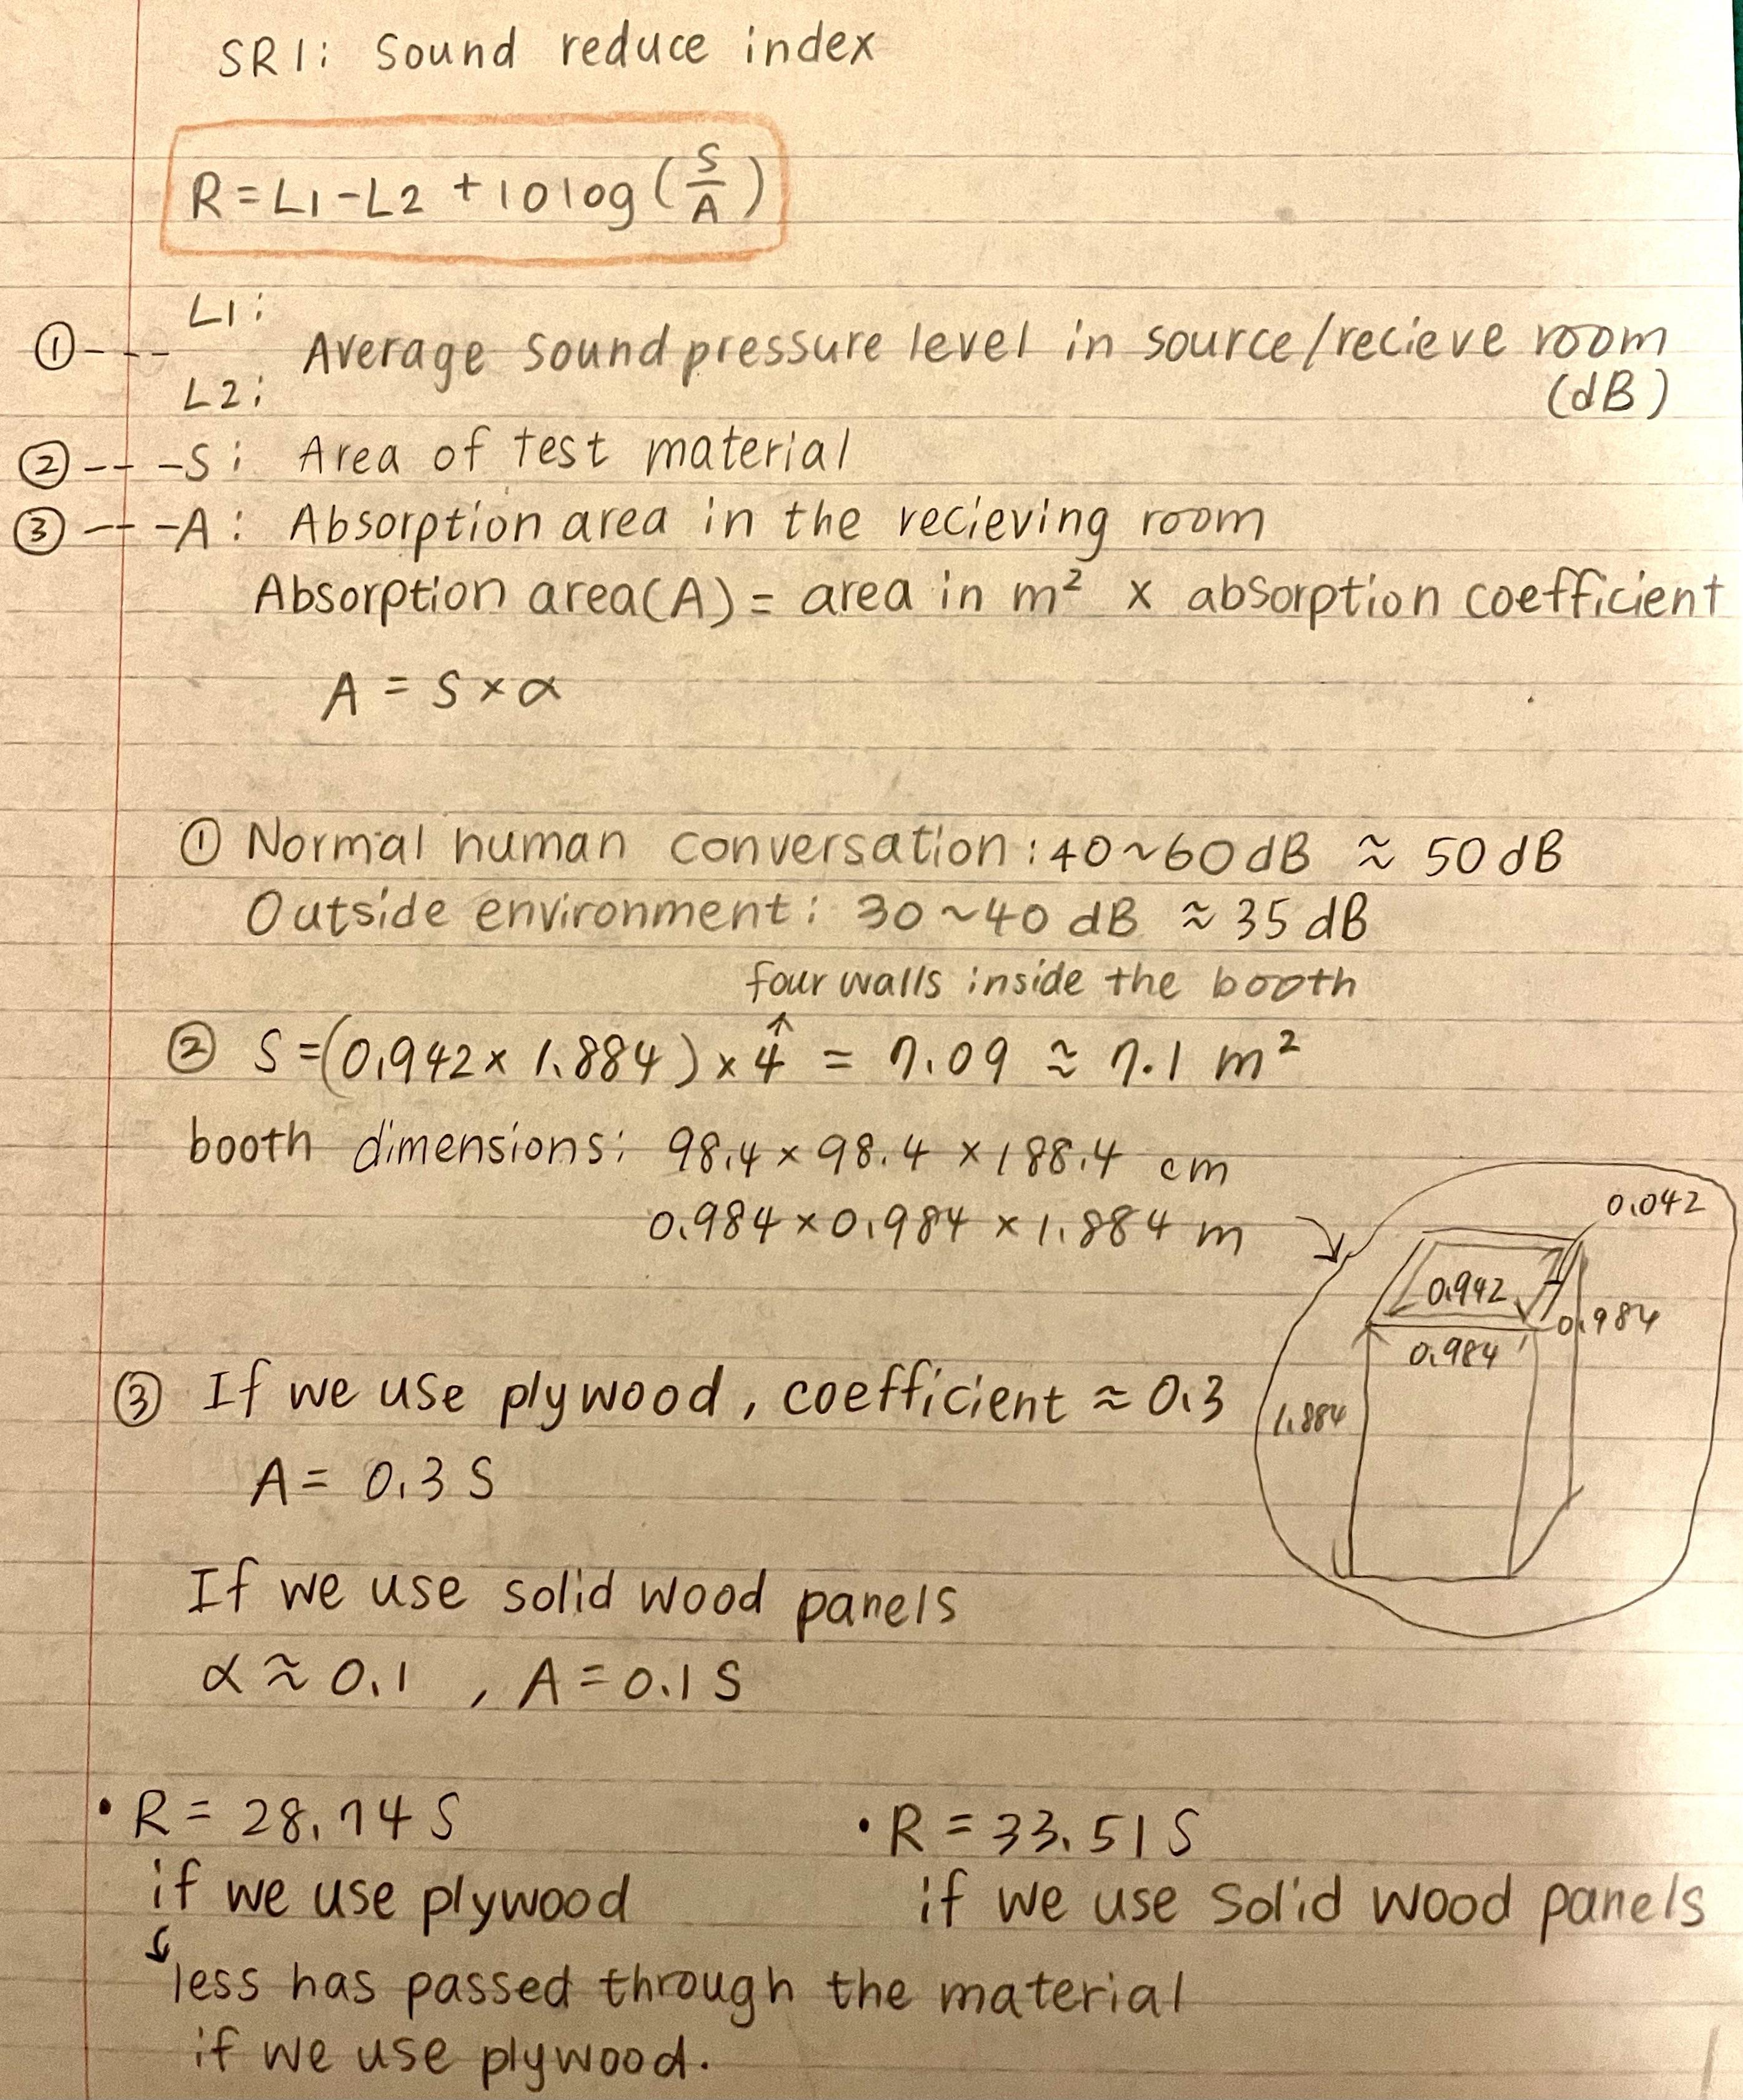 SRI: Sound reduce index
R = L1 - L2 + 10 log (S/A)
L1:
① - - - Average sound pressure level in source/recieve room
L2: (dB)
② - - - S: Area of test material
③ - - - A: Absorption area in the recieving room
Absorption area(A) = area in m² × absorption coefficient
A = S × α
① Normal human conversation: 40~60 dB ≈ 50 dB
Outside environment: 30~40 dB ≈ 35 dB
four walls inside the booth
↑
② S = (0.942 × 1.884) × 4 = 7.09 ≈ 7.1 m²
booth dimensions: 98.4 × 98.4 × 188.4 cm
0.984 × 0.984 × 1.884 m →
0.042
0.942
0.984
0.984
1.884
③ If we use plywood, coefficient ≈ 0.3
A = 0.3 S
If we use solid wood panels
α ≈ 0.1 , A = 0.1 S
• R = 28.74 S
if we use plywood
↳ less has passed through the material
if we use plywood.
• R = 33.51 S
if we use solid wood panels